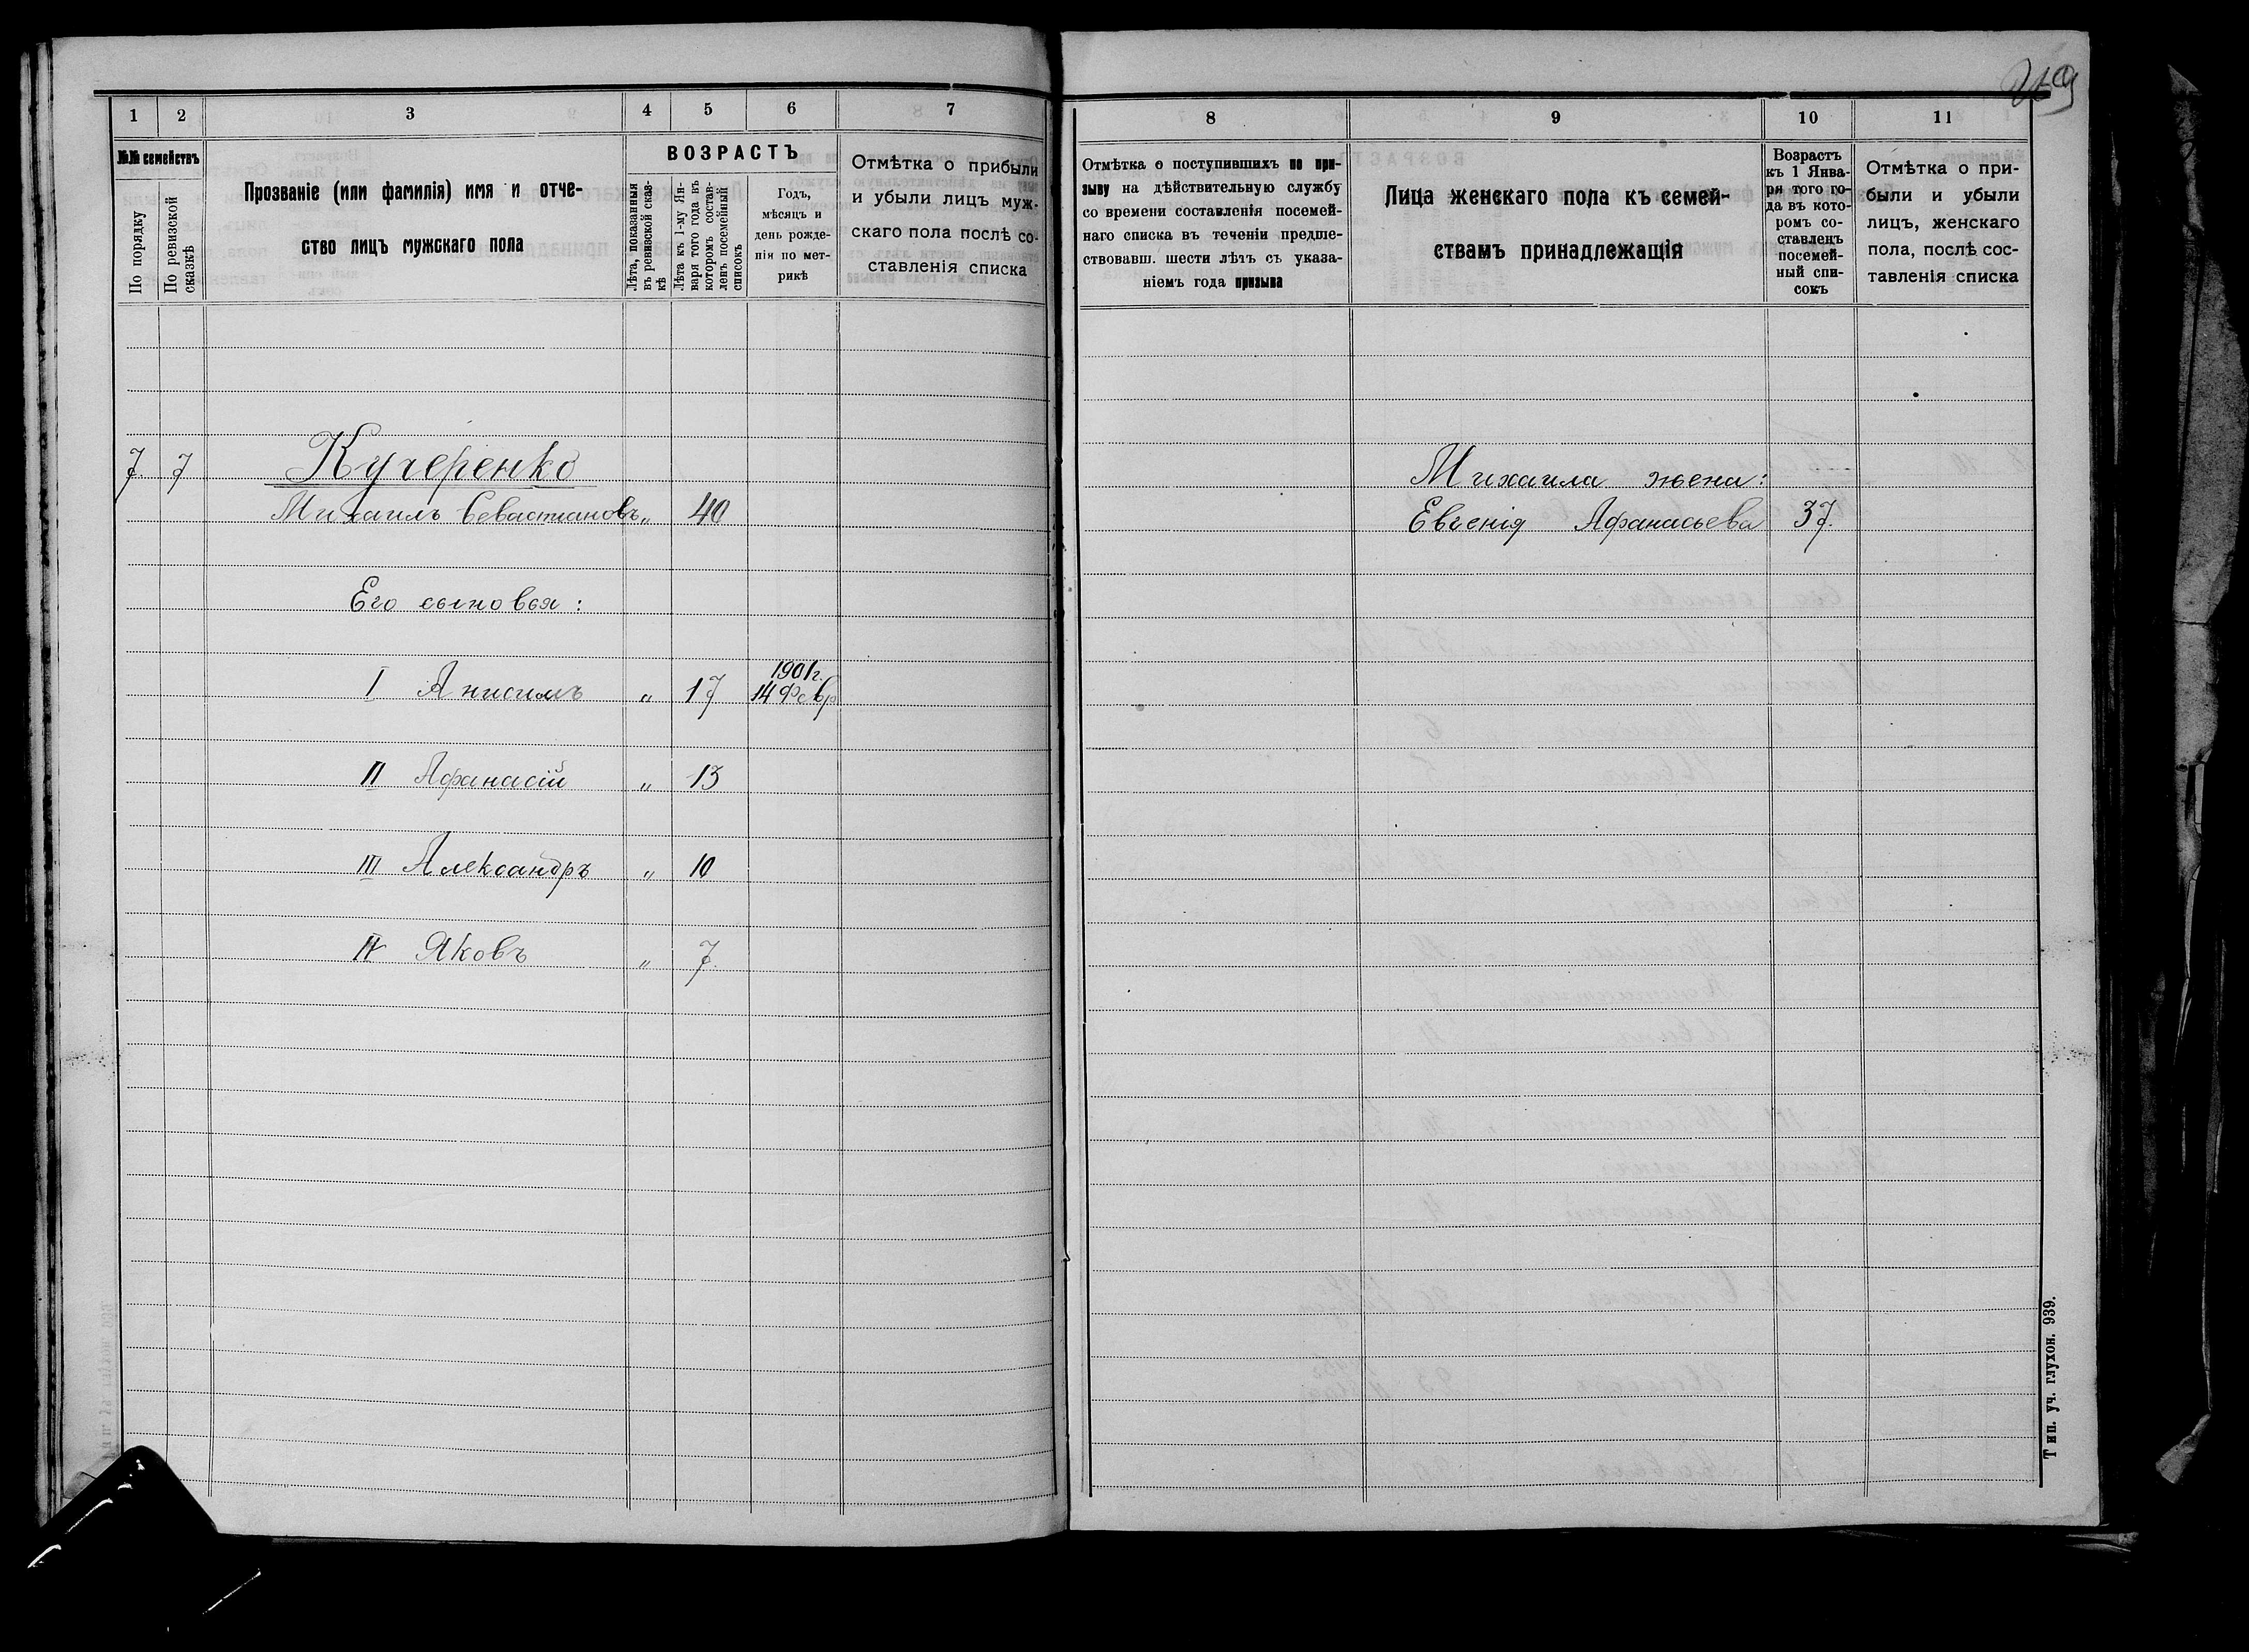 1 2 3 4 5 6 7
№№ семействъ
По порядку
По ревизской сказкѣ
Прозваніе (или фамилія) имя и отче-
ство лицъ мужскаго пола
ВОЗРАСТЪ
Лѣта, показанныя
въ ревизской сказ-
кѣ
Лѣта къ 1-му Ян-
варя того года въ
которомъ состав-
ленъ посемейный
списокъ
Годъ,
мѣсяцъ и
день рожде-
нія по мет-
рикѣ
Отмѣтка о прибыли
и убыли лицъ муж-
скаго пола послѣ со-
ставленія списка
7 7 Кучеренко
Михаилъ Севастіановъ „ 40
Его сыновья:
I Анисимъ „ 17 1901г.
14 Февр
II Афанасій „ 13
III Александръ „ 10
IV Яковъ „ 7.
8 9 10 11
Отмѣтка о поступившихъ по при-
зыву на дѣйствительную службу
со времени составленія посемей-
наго списка въ теченіи предше-
ствовавш. шести лѣтъ съ указа-
ніемъ года призыва
Лица женскаго пола къ семей-
ствамъ принадлежащія
Возрастъ
къ 1 Янва-
ря того го-
да въ кото-
ромъ со-
ставленъ
посемей-
ный спи-
сокъ
Отмѣтка о при-
были и убыли
лицъ, женскаго
пола, послѣ сос-
тавленія списка
Михаила жена:
Евгенія Афанасьева 37.
Тип. уч. глухон. 939.